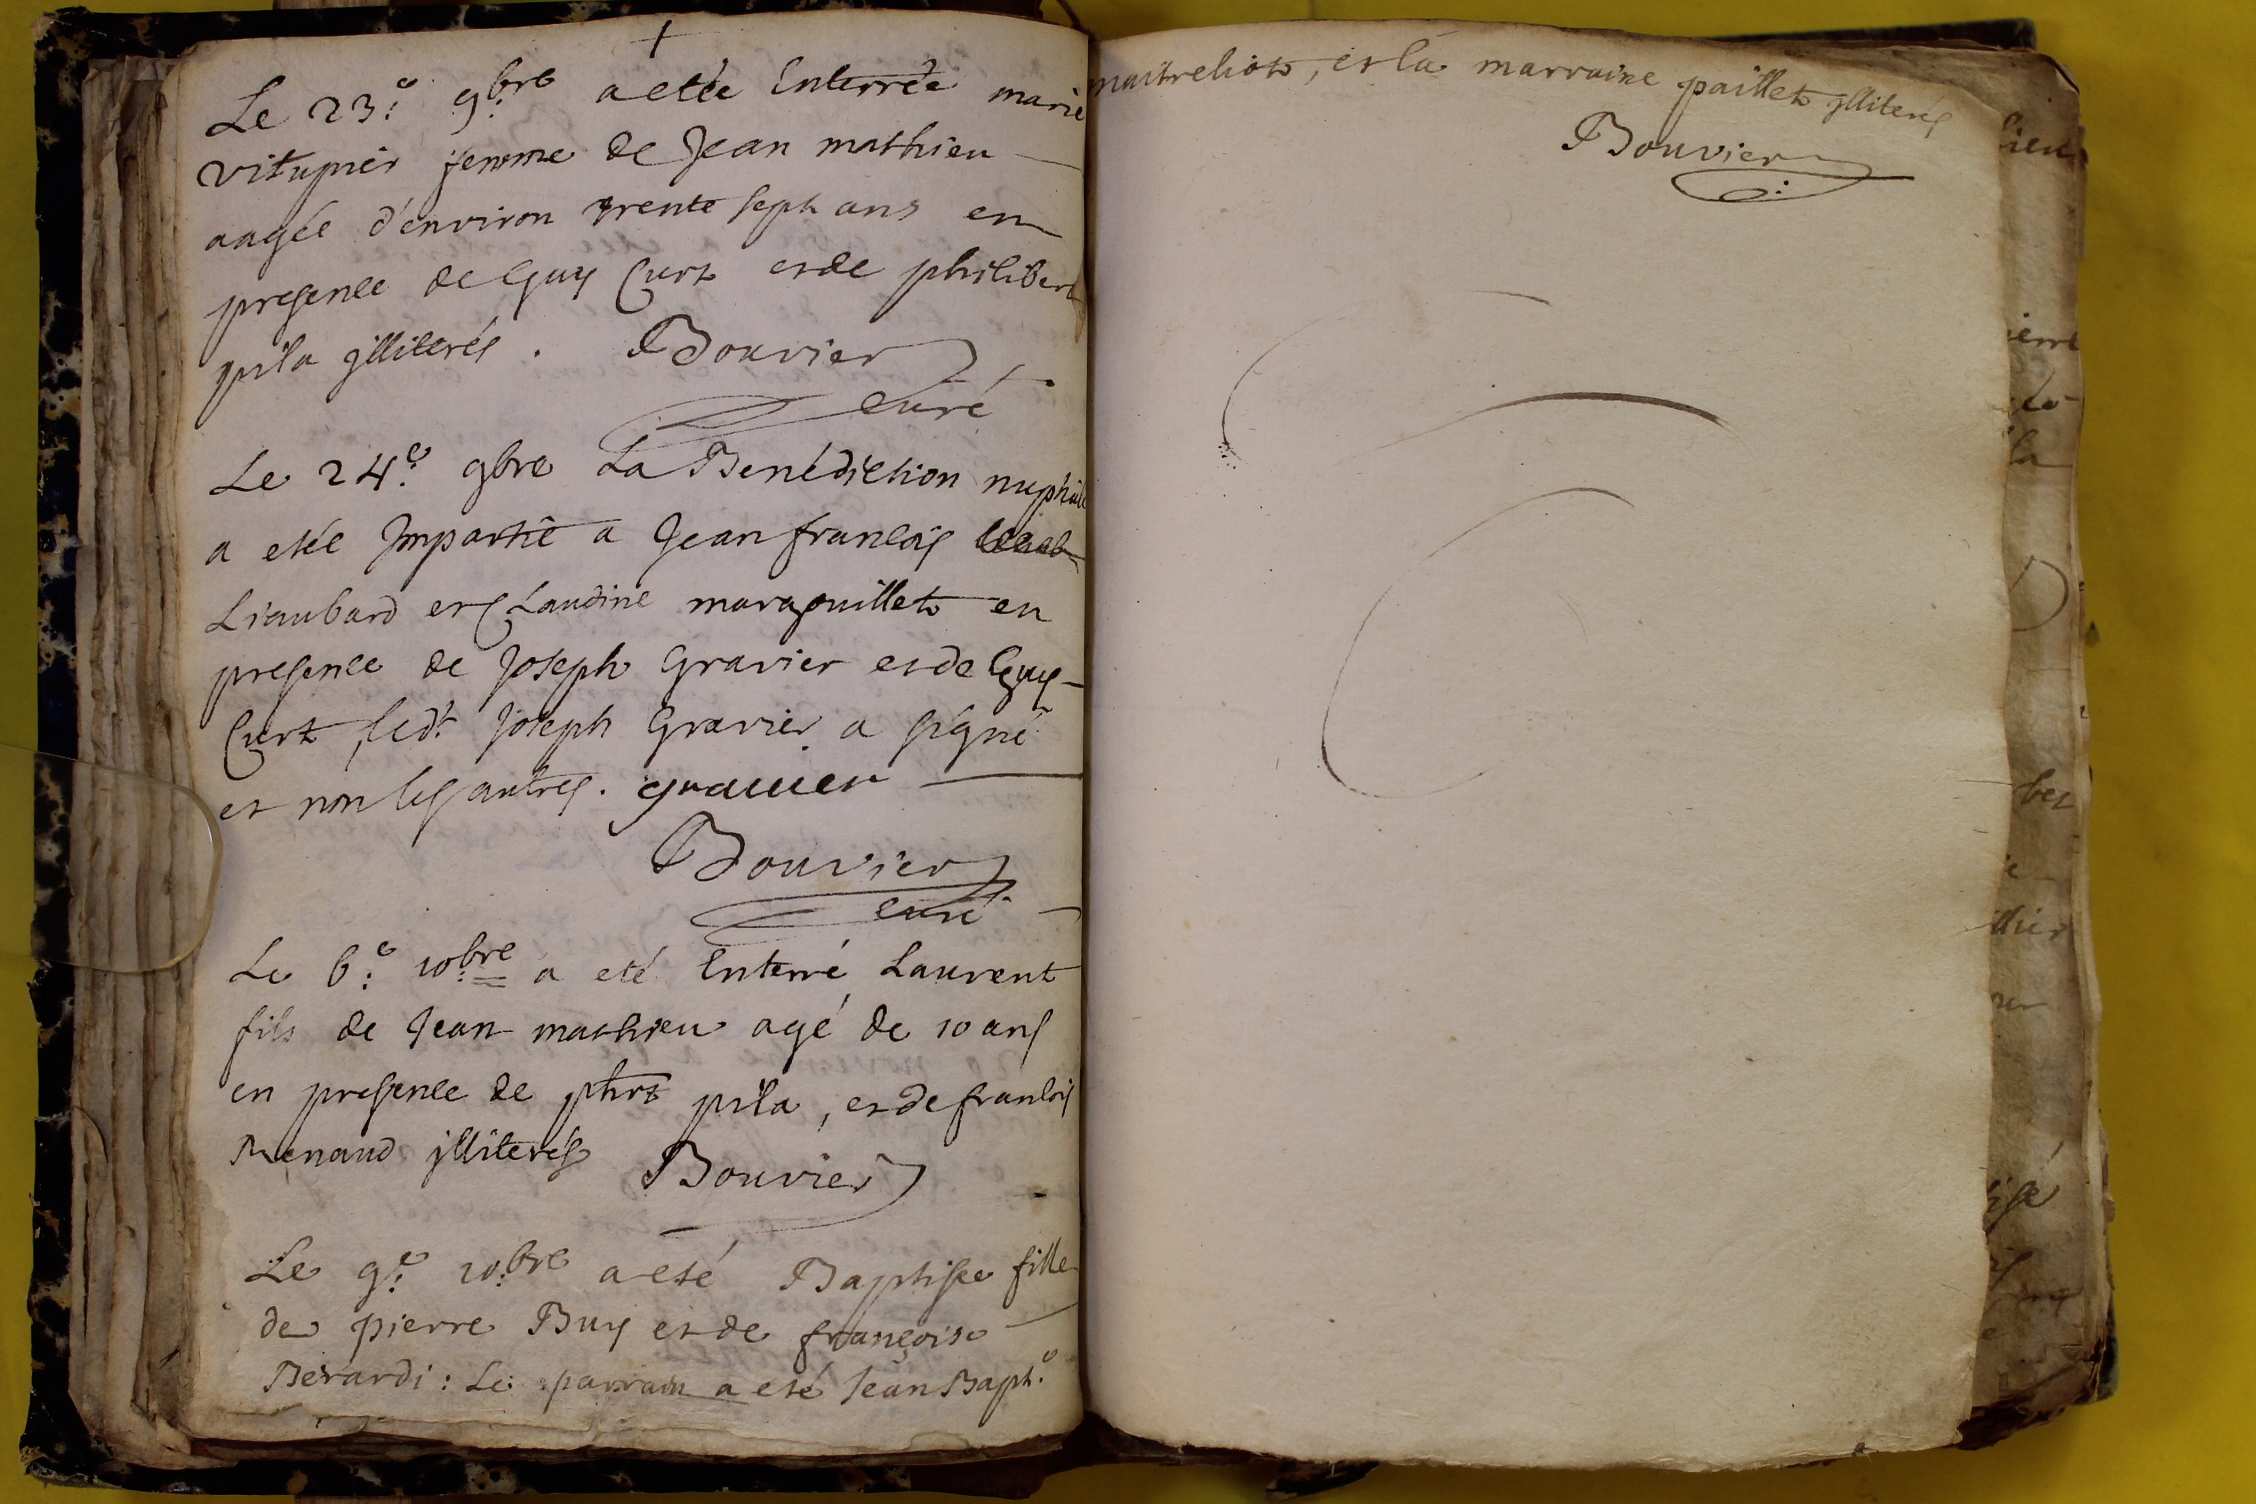 Le 23.e 9bre a etée Enterrée marie
vitupier femme de Jean mathieu
aagée d'environ trente sept ans en
presence de Guy Curt et de philibert
pila jlliterés. Bouvier
curé
Le 24.e 9bre La Benédiction nuptiale
a etée Jmpartie a Jean françois
Liaubard et Claudine maragouillet en
presence de Joseph Gravier et de Guy
Curt, led.t Joseph Gravier a signé
et non les autres. gravier
Bouvier
curé
Le 6.e 10bre a eté Enterré Laurent
fils de Jean mathieu agé de 10 ans
en presence de phrt pila, et de françois
Renaud jlliterés Bouvier
Le 9.e 10.bre a eté Baptisée fille
de pierre Buy et de françoise
Berardi: Le parrain a eté Jean Bapt.e
maitreliot, et la marraine paillet jlliterés
Bouvier